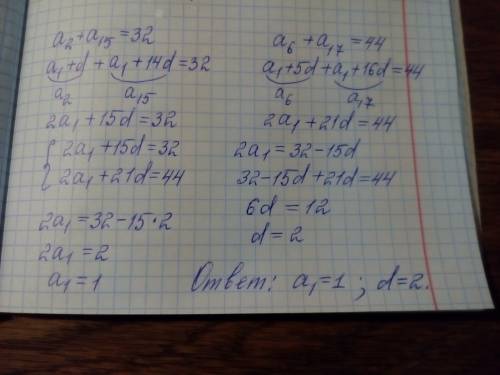 a₂+a₁₅=32
a₁+d+a₁+14d=32
a₂ a₁₅
2a₁+15d=32
{ 2a₁+15d=32
2a₁+21d=44
2a₁=32-15·2
2a₁=2
a₁=1
a₆+a₁₇=44
a₁+5d+a₁+16d=44
a₆ a₁₇
2a₁+21d=44
2a₁=32-15d
32-15d+21d=44
6d=12
d=2
Ответ: a₁=1; d=2.